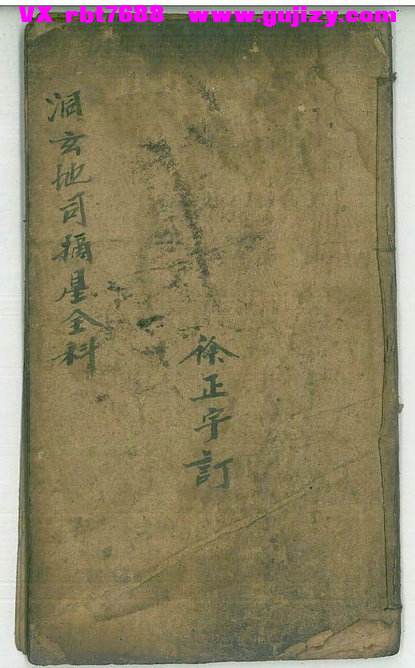 VX-rbt7688 www.gujizy.com
洞玄地司摘星全科
徐正宇訂